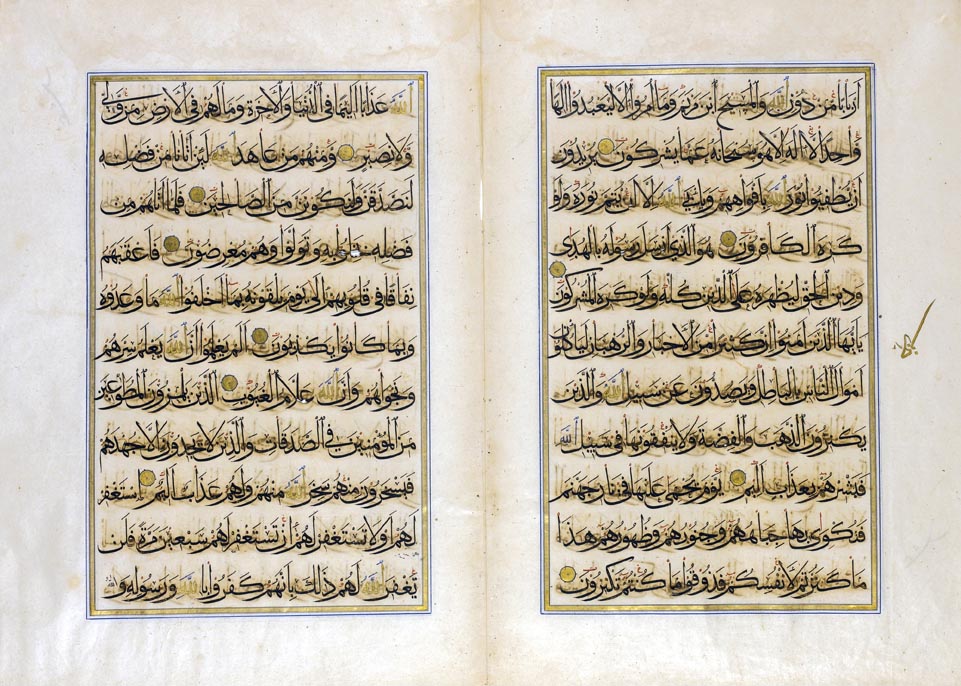 أربابا من دون الله والمسيح ابن مريم وما أمروا إلا ليعبدوا إلها
واحدا لا إله إلا هو سبحانه عما يشركون يريدون
أن يطفئوا نور الله بأفواههم ويأبى الله إلا أن يتم نوره ولو
كره الكافرون هو الذي أرسل رسوله بالهدى
ودين الحق ليظهره على الدين كله ولو كره المشركون
يا أيها الذين آمنوا إن كثيرا من الأحبار والرهبان ليأكلون
أموال الناس بالباطل ويصدون عن سبيل الله والذين
يكنزون الذهب والفضة ولا ينفقونها في سبيل الله
فبشرهم بعذاب أليم يوم يحمى عليها في نار جهنم
فتكوى بها جباههم وجنوبهم وظهورهم هذا
ما كنزتم لأنفسكم فذوقوا ما كنتم تكنزون
الله عذابا أليما في الدنيا والآخرة وما لهم في الأرض من ولي
ولا نصير ومنهم من عاهد الله لئن آتانا من فضله
لنصدقن ولنكونن من الصالحين فلما آتاهم من
فضله بخلوا به وتولوا وهم معرضون فأعقبهم
نفاقا في قلوبهم إلى يوم يلقونه بما أخلفوا الله ما وعدوه
وبما كانوا يكذبون ألم يعلموا أن الله يعلم سرهم
ونجواهم وأن الله علام الغيوب الذين يلمزون المطوعين
من المؤمنين في الصدقات والذين لا يجدون إلا جهدهم
فيسخرون منهم سخر الله منهم ولهم عذاب أليم استغفر
لهم أو لا تستغفر لهم إن تستغفر لهم سبعين مرة فلن
يغفر الله لهم ذلك بأنهم كفروا بالله ورسوله والله